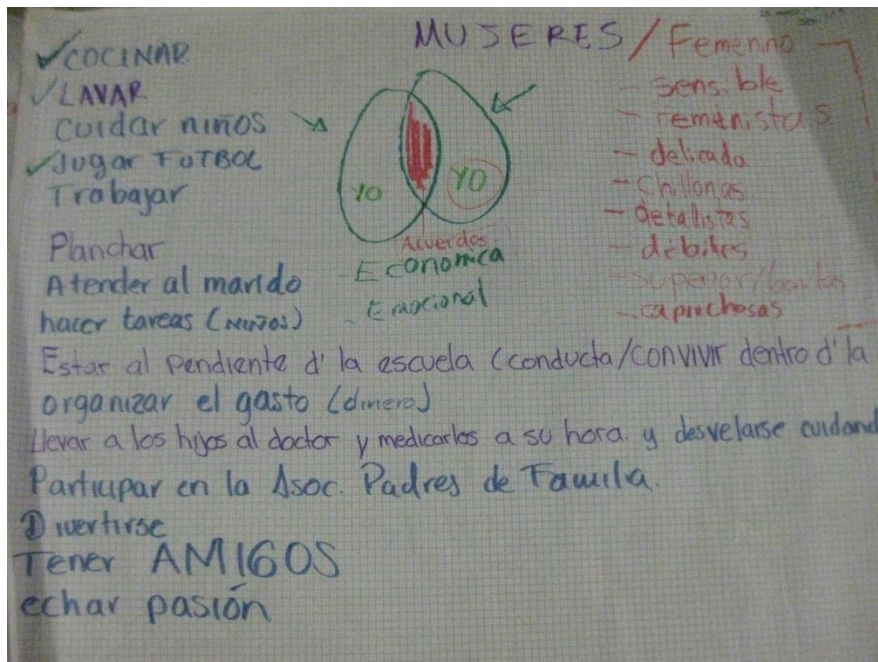 MUJERES / Femenino
✓ COCINAR
✓ LAVAR
Cuidar niños
✓ Jugar FUTBOL
Trabajar
Planchar
Atender al marido
hacer tareas (NIÑOS)
YO
YO
Acuerdos
- Economica
- Emocional
- sensible
- femenistas
- delicada
- chillonas
- detallistas
- débiles
- superior/
- caprichosas
Estar al pendiente d' la escuela (conducta/convivir dentro d' la
organizar el gasto (dinero)
Llevar a los hijos al doctor y medicarlos a su hora. y desvelarse cuidand
Participar en la Asoc. Padres de Familia.
Divertirse
Tener AMIGOS
echar pasión